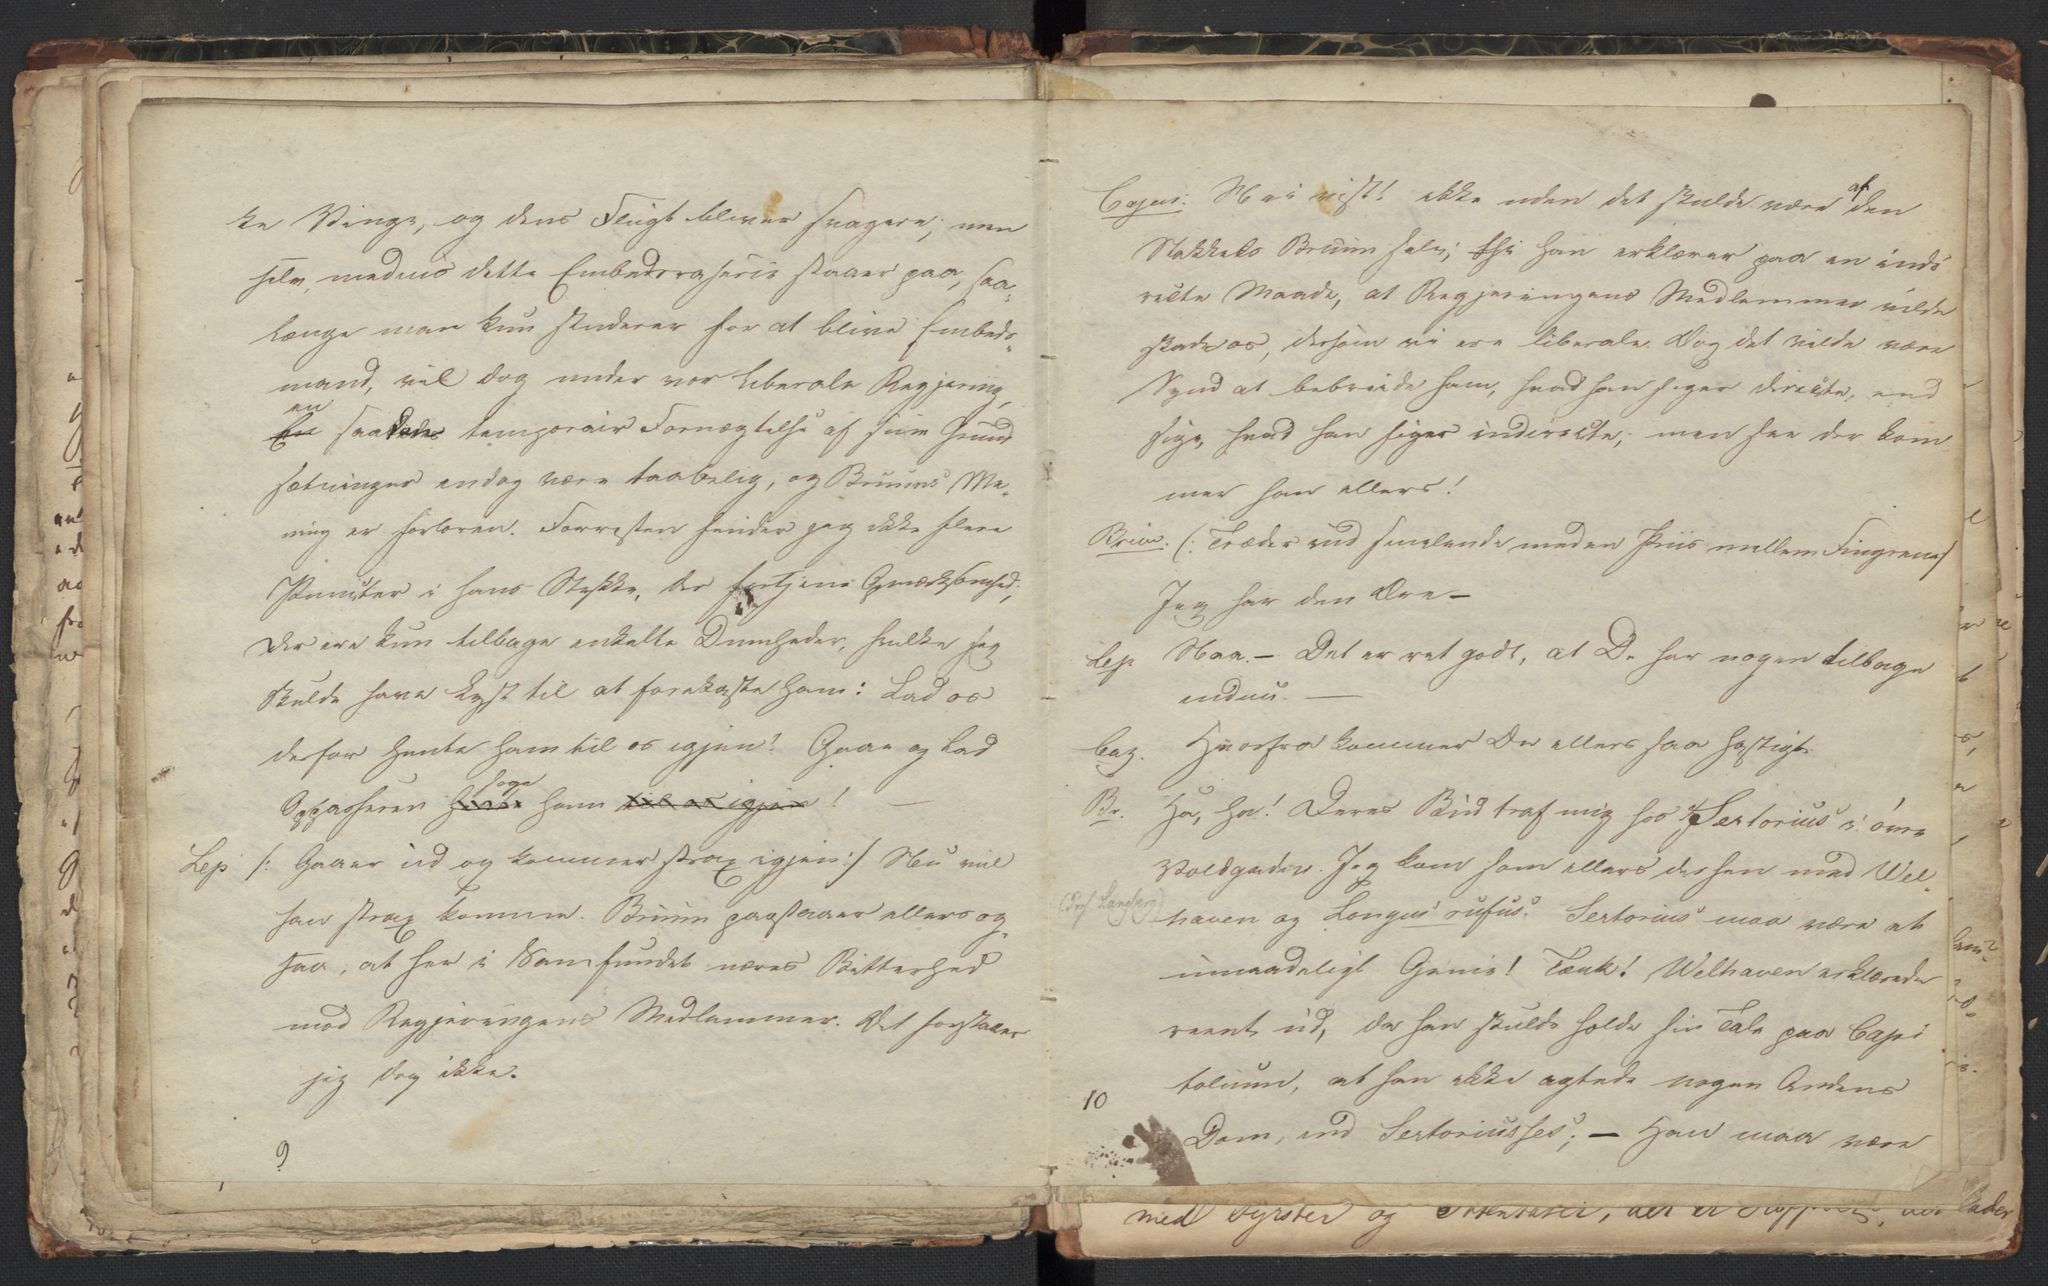 ke Vinge, og dens Flugt bliver svagere; men
selv, medens dette Embedsraseri staaer paa, saa-
længe man kun studerer for at blive Embeds-
mand, vil dog under vor liberale Regjering,
en
En saadan temporair Fornægtelse af sine Grund
sætninger endog være taabelig, og Bruuns Me-
ning er forloren. Forresten finder jeg ikke flere
Puncter i hans Stykke, der fortjene Opmærksomhed;
der ere kun tilbage enkelte Dumheder, hvilke jeg
skulde have Lyst til at forekaste ham: Lad os
derfor hente ham til os igjen! Gaae og lad
søge
Oppasseren hente ham til os igjen! —
Lep /: Gaaer ud og kommer strax igjen:/ Nu vil
han strax komme. Bruun paastaaer ellers og-
saa, at her i Samfundet næres Bitterhed
mod Regjeringens Medlemmer. Det forstaaer
jeg dog ikke.
9
Cajus: Nei vist! ikke uden det skulde være af den
Stakkels Bruun selv; thi han erklærer paa en indi
recte Maade, at Regjeringens Medlemmer vilde
skade os, dersom vi ere liberale. Dog det vilde være
Synd at bebreide ham, hvad han siger directe, end
sige, hvad han siger indirecte; men see der kom
mer han ellers!
Bruun. (: Træder ind smilende med en Priis mellem Fingrene/
Jeg har den Ære —
Lep Naa. — Det er ret godt, at De har nogen tilbage
endnu. —
Caj. Hvorfra kommer De ellers saa hastigt.
Br. Ha, ha! Deres Bud traf mig hos Sertorius i øvre
Voldgaden. Jeg kom som ellers derhen med Wel-
haven og Longus rufus. Sertorius maa være et
umaadeligt Genie! Tænk! Welhaven erklærede
reent ud, da han skulde holde sin Tale paa Capi
tolium, at han ikke agtede nogen Andens
10
Dom, end Sertoriusses; — Han maa være
med Fyrster og